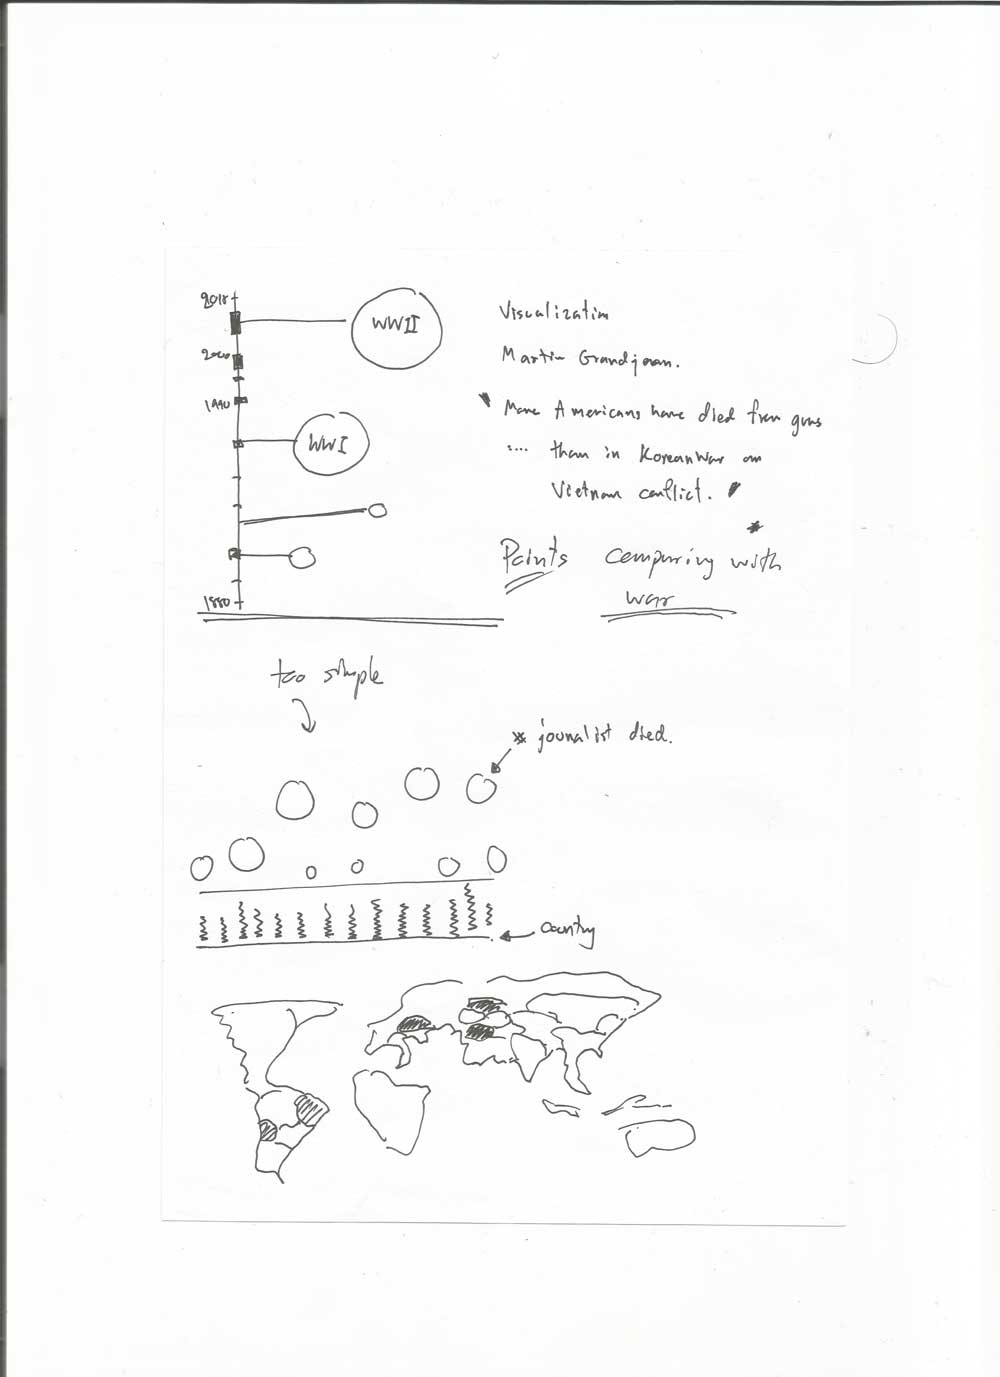 2018
WWII
2000
1990
WWI
1880
Visualization
Martin Grandjean.
" More Americans have died from guns
.... than in Korean War or
Vietnam conflict. "
*
Points comparing with
war
too simple
* jounalist died.
country